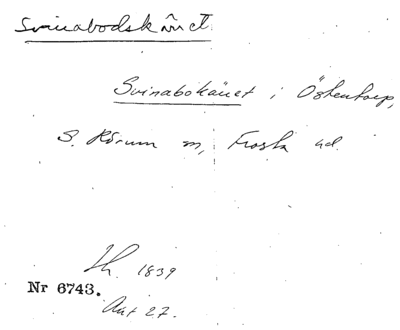 Svinabodskäret
Svinabokäret i Östentorp,
S. Rörum sn, Frosta hd.
Lh. 1839
Nr 6743.
Akt 27.